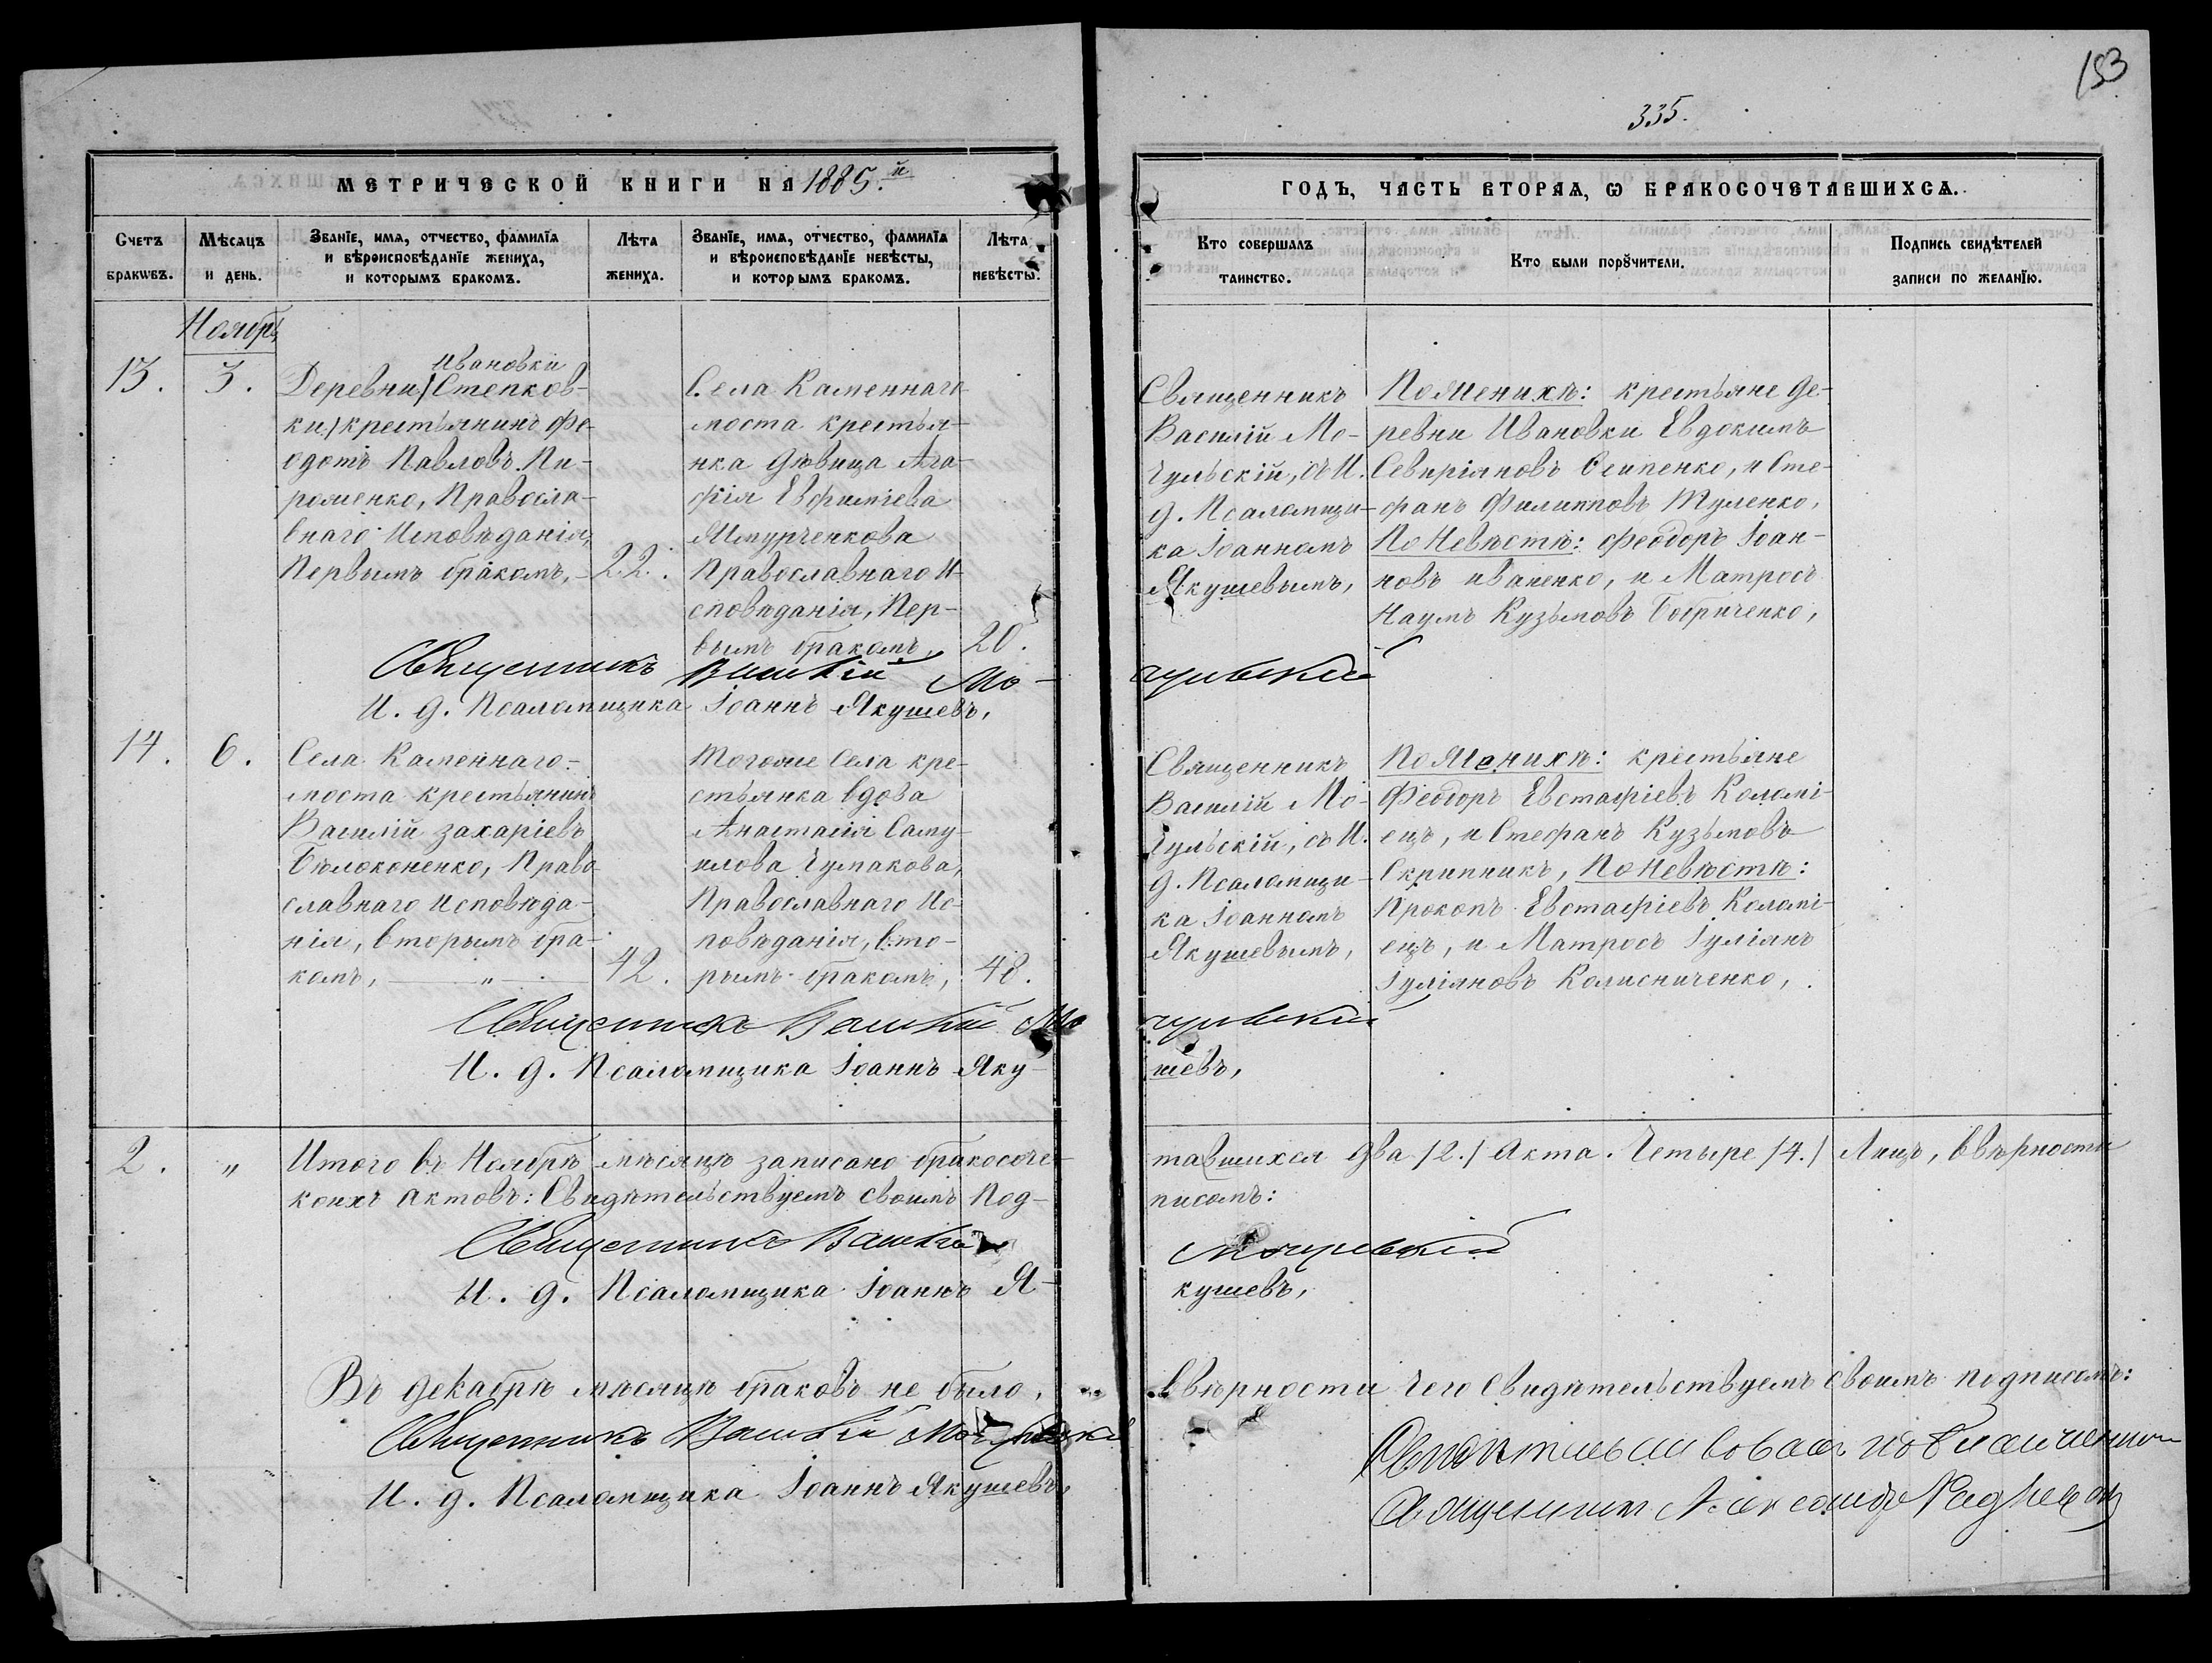 153
335.
МЕТРИЧЕСКОЙ КНИГИ НА 1885.й
ГОДЪ, ЧАСТЬ ВТОРАЯ, Ѡ БРАКОСОЧЕТАВШИХСЯ.
Счетъ браковъ.
Мѣсяцъ и день.
Званіе, имя, отчество, фамилія
и вѣроисповѣданіе жениха,
и которымъ бракомъ.
Лѣта
жениха.
Званіе, имя, отчество, фамилія
и вѣроисповѣданіе невѣсты,
и которымъ бракомъ.
Лѣта
невѣсты.
Кто совершалъ
таинство.
Кто были порꙋчители.
Подпись свидѣтелей
записи по желанію.
Ноябрь
13.
3.
Ивановки
Деревни /Степков-
ки/ крестьянинъ Фе-
одотъ Павловъ Пи-
роменко, Правосла-
внаго Исповѣданія,
Первымъ бракомъ, -
22.
Села Каменнаго
моста крестья-
нка дѣвица Ага-
фія Евфиміева
Православнаго И-
сповѣданія, Пер-
вымъ бракомъ,
20.
Священникъ
Василій Мо-
гульскій, съ И.
д. Псаломщи-
ка Іоанномъ
Якушевымъ,
По Женихѣ: крестьяне де-
ревни Ивановки Евдокимъ
Севиріяновъ Осипенко, и Сте-
фанъ Филипповъ Туленко,
По Невѣстѣ: Феодоръ Іоан-
новъ Иваненко, и Матросъ
Наумъ Кузьмовъ Бобриченко,
Священникъ Василій Мо-
гульскій
И. д. Псаломщика Іоаннъ Якушевъ,
14.
6.
Села Каменнаго-
моста крестьянинъ
Василій Захаріевъ
Бѣлоконенко, Право
славнаго Исповѣда-
нія, Вторымъ бра-
комъ, — „ —
42.
Тогоже Села кре-
стьянка вдова
Анастасія Саму-
илова Чумакова,
Православнаго Ис-
повѣданія, Вто-
рымъ бракомъ,
48.
Священникъ
Василій Мо-
гульскій, съ И.
д. Псаломщи-
ка Іоанномъ
Якушевымъ,
По Женихѣ: крестьяне
Феодоръ Евстафіевъ Коломі-
ецъ, и Стефанъ Кузьмовъ
Скрипникъ, По Невѣстѣ:
Прокопъ Евстафіевъ Коломі-
ецъ, и Матросъ Іуліянъ
Іуліяновъ Колисниченко,
Священникъ Василій Мо
гульскій
И. д. Псаломщика Іоаннъ Яку-
шевъ,
2.
„
Итого въ Ноябрѣ мѣсяцѣ записано бракосоче-
тавшихся два /2./ Акта. Четыре /4./ Лицъ, Ввѣрности
коихъ актовъ: Свидѣтельствуемъ своимъ Под-
писомъ:
Священникъ Василій
Могульскій
И. д. Псаломщика Іоаннъ Я-
кушевъ,
Въ декабрѣ мѣсяцѣ браковъ не было,
Ввѣрности чего Свидѣтельствуемъ своимъ подписомъ:
Священникъ Василій Могульскій
И. д. Псаломщика Іоаннъ Якушевъ,